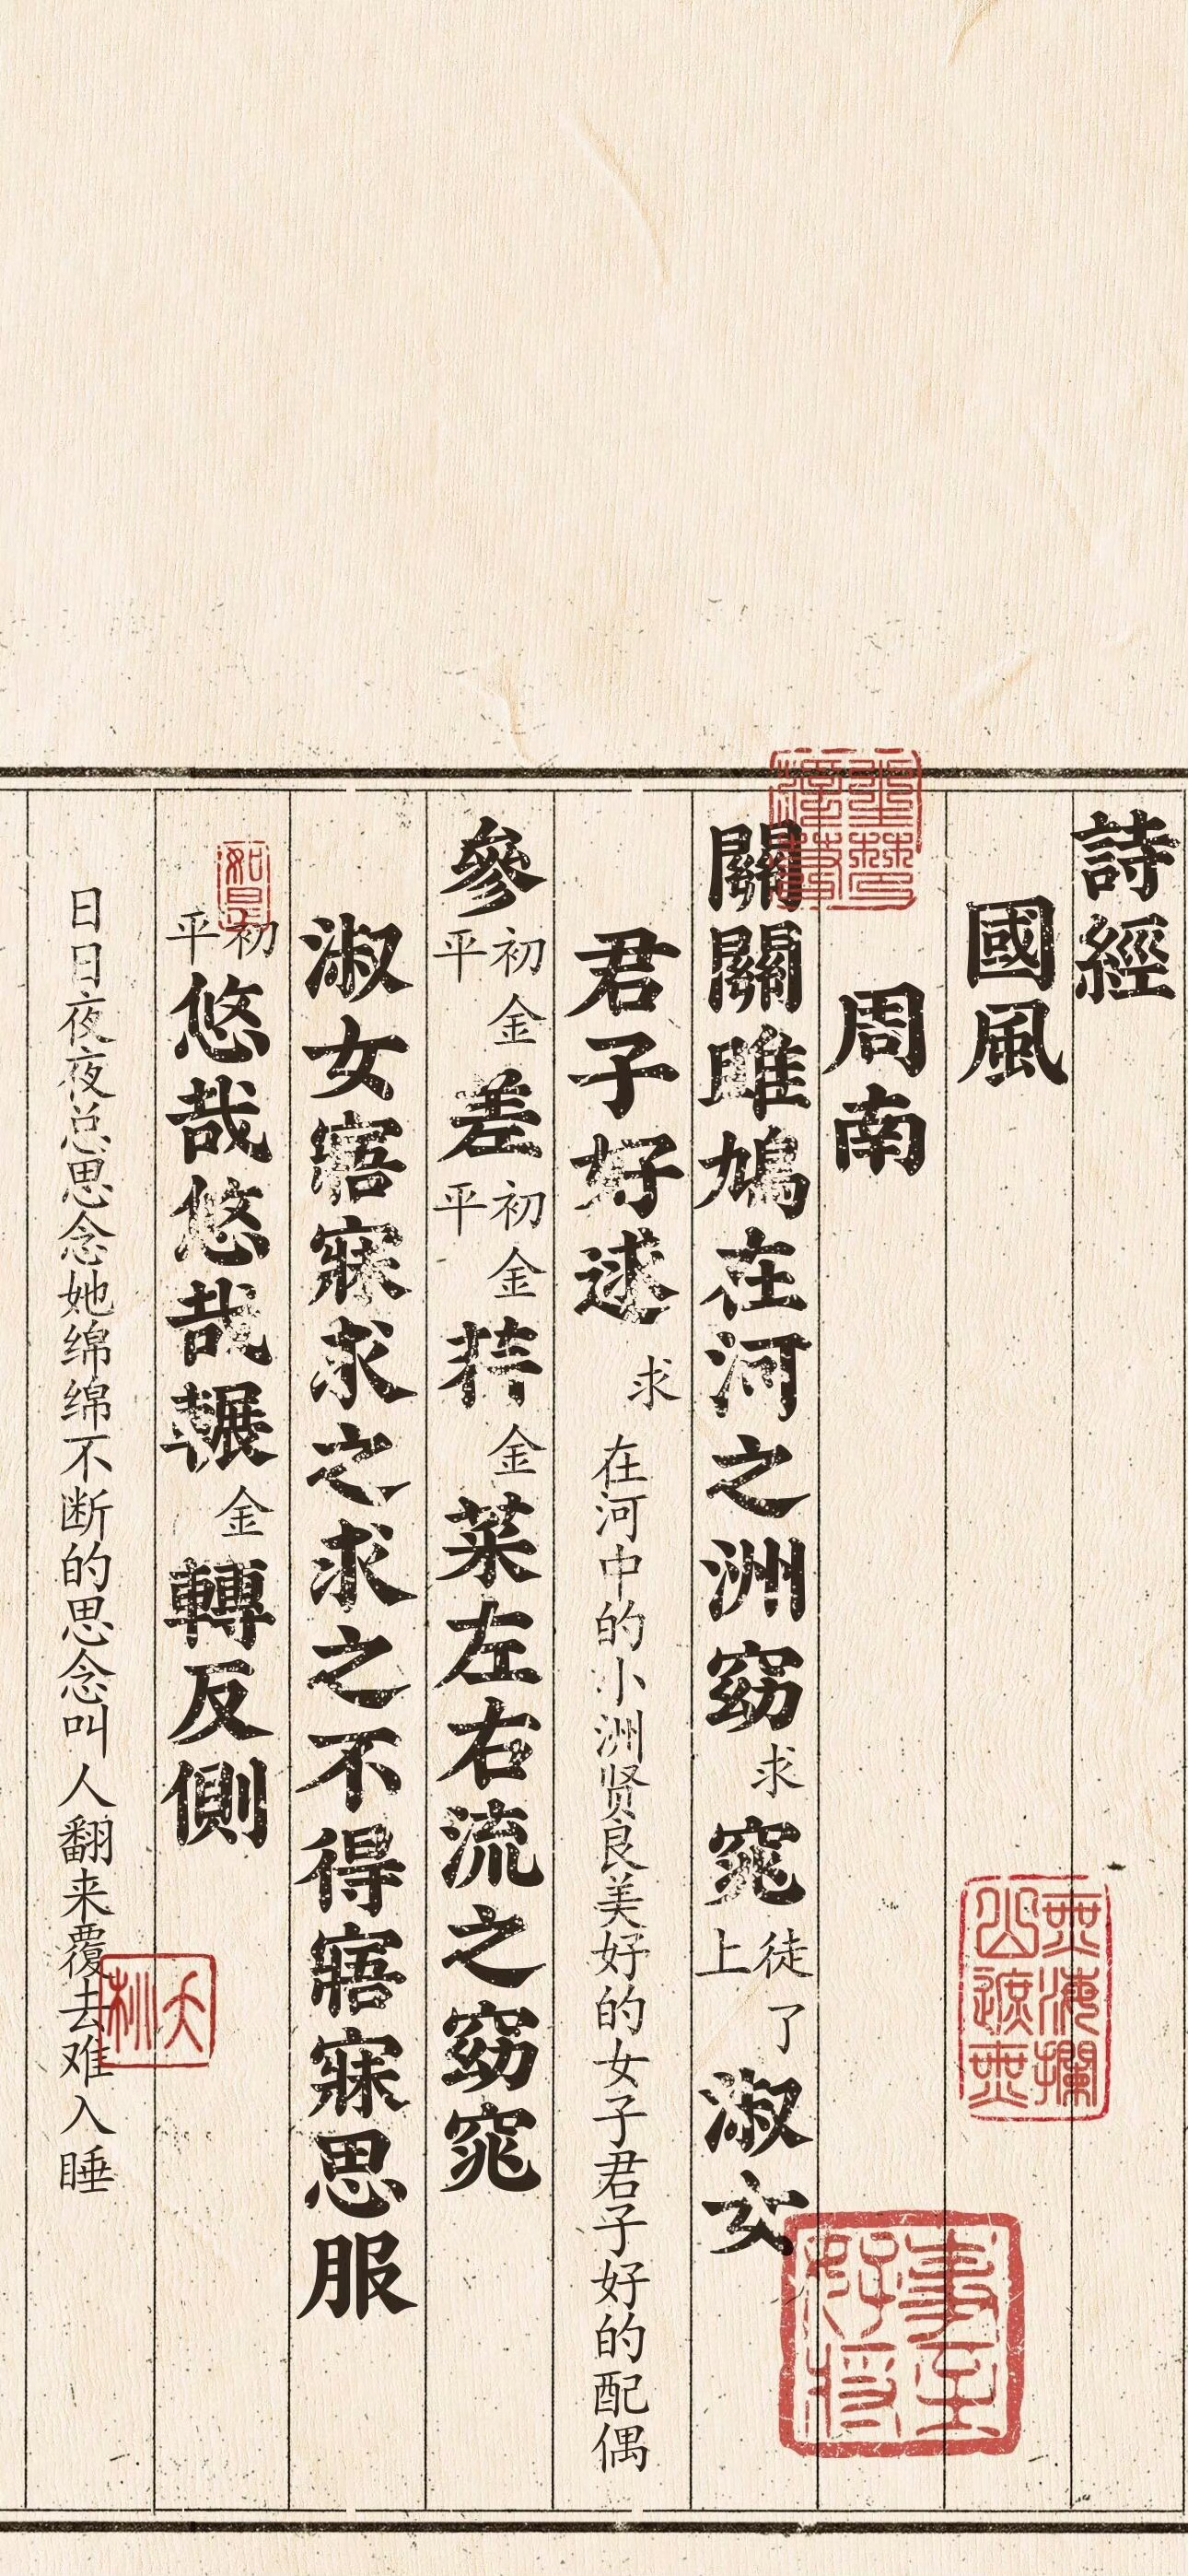 詩經
國風
周南
關關雎鳩在河之洲窈求窕徒上了淑女
君子好逑求在河中的小洲贤良美好的女子君子好的配偶
參初平金差初平金荇金菜左右流之窈窕
淑女寤寐求之求之不得寤寐思服
初平悠哉悠哉輾金轉反側
日日夜夜总思念她绵绵不断的思念叫人翻来覆去难入睡